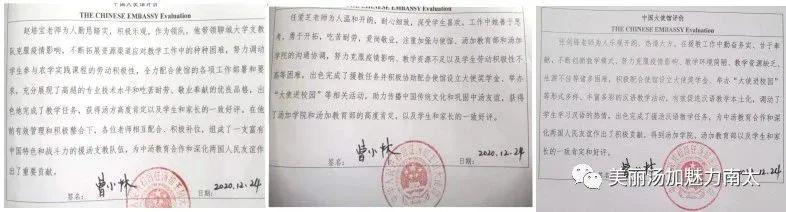 中国大使馆评价
THE CHINESE EMBASSY Evaluation
赵培宝老师为人勤恳踏实，积极乐观。作为领队，他带领聊城大学支教
队克服疫情影响，不断拓展资源渠道应对教学工作中的种种困难，努力调动
学生参与农学实践课程的劳动积极性，全力配合使馆的各项工作部署和要
求，充分展现了高超的专业技术水平和吃苦耐劳、敬业奉献的优良品格，出
色地完成了教学任务，获得汤方高度肯定以及学生和家长的一致好评。在他
的有效管理和积极整合下，各位老师相互配合、积极补位，组成了一支富有
中国特色和战斗力的援汤支教队伍，为中汤教育合作和深化两国人民友谊作
出了重要贡献。
签名：曾小林 日期：2020.12.24
THE CHINESE EMBASSY Evaluation
任爱芝老师为人温和开朗，耐心细致，深受学生喜欢。工作中她善于思
考，勇于开拓，吃苦耐劳，爱岗敬业，注重加强与使馆、汤加教育部和汤加
学院的沟通协调，努力克服疫情影响、教学资源不足以及学生劳动积极性不
高等困难，出色完成了援教任务并积极协助配合使馆设立大使奖学金、举办
“大使进校园”等相关活动，助力传播中国传统文化和巩固中汤友谊，获得
了汤加学院和汤加教育部的高度肯定，以及学生和家长的一致好评。
签名：曾小林 日期：2020.12.24
中国大使馆评价
THE CHINESE EMBASSY Evaluation
老师为人乐观开朗、热情大方。在援教工作中勤奋务实、甘于奉
献，不断创新教学模式，努力克服疫情影响、教学环境简陋、教学资源缺乏、
生源不佳等诸多困难，积极配合使馆设立大使奖学金、举办“大使进校园”
等形式多样、丰富多彩的汉语教学活动，有效促进汉语教学本土化，调动了
学生学习汉语的热情，出色完成了援汤汉语教学任务，为中汤教育合作和深
化两国人民友谊作出了积极贡献，得到汤加学院、汤加教育部以及学生家长
的一致肯定和好评。
签名：曾小林 日期：2020.12.24
美丽汤加魅力南太